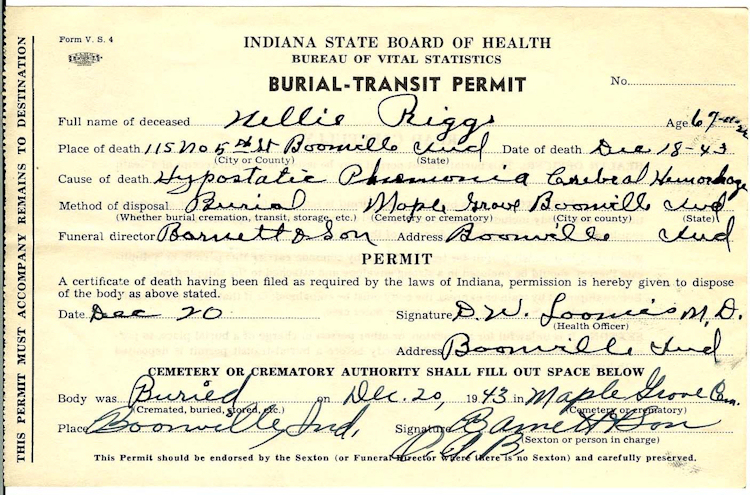 Form V. S. 4
INDIANA STATE BOARD OF HEALTH
BUREAU OF VITAL STATISTICS
BURIAL-TRANSIT PERMIT
No.
Full name of deceased Nellie Riggs Age 67
Place of death 115 No 5th St Boonville Ind Date of death Dec 18-43
(City or County) (State)
Cause of death Hypostatic Pneumonia Cerebral Hemorrhage
Method of disposal Burial Maple Grove Boonville Ind
(Whether burial cremation, transit, storage, etc.) (Cemetery or crematory) (City or county) (State)
Funeral director Barnett & Son Address Boonville Ind
PERMIT
A certificate of death having been filed as required by the laws of Indiana, permission is hereby given to dispose
of the body as above stated.
Date Dec 20 Signature D. W. Loomis M. D.
(Health Officer)
Address Boonville Ind
CEMETERY OR CREMATORY AUTHORITY SHALL FILL OUT SPACE BELOW
Body was Buried on Dec. 20, 1943 in Maple Grove Cem.
(Cremated, buried, stored, etc.) (Cemetery or crematory)
Place Boonville, Ind. Signature Barnett & Son
(Sexton or person in charge)
This Permit should be endorsed by the Sexton (or Funeral Director where there is no Sexton) and carefully preserved.
THIS PERMIT MUST ACCOMPANY REMAINS TO DESTINATION